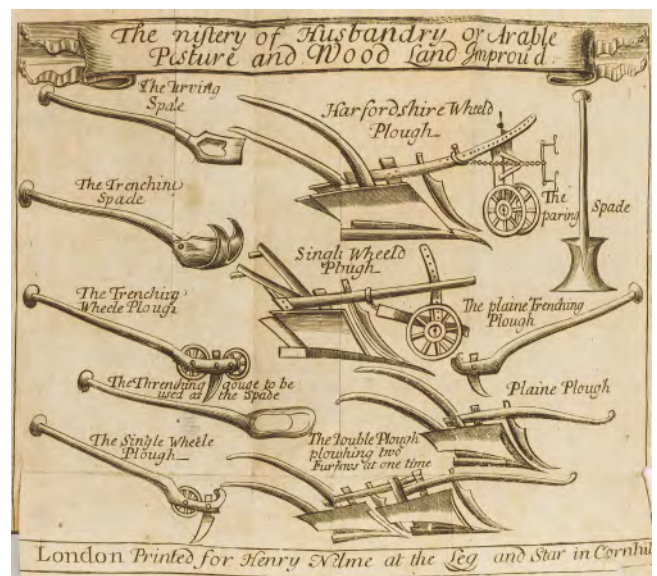 The nistery of Husbandry or Arable
Pesture and Wood Land Improu'd
The Turving
Spade
Harfordshire Wheeld
Plough
The
paring
Spade
The Trenching
Spade
Singli Wheeld
Plough
The Trenching
Wheele Plough
The plaine Trenching
Plough
The Threnching gouge to be
used at the Spade
Plaine Plough
The Single Wheele
Plough
The Double Plough
plowhing two
Furhws at one time
London Printed for Henry Nelme at the Leg and Star in Cornhil